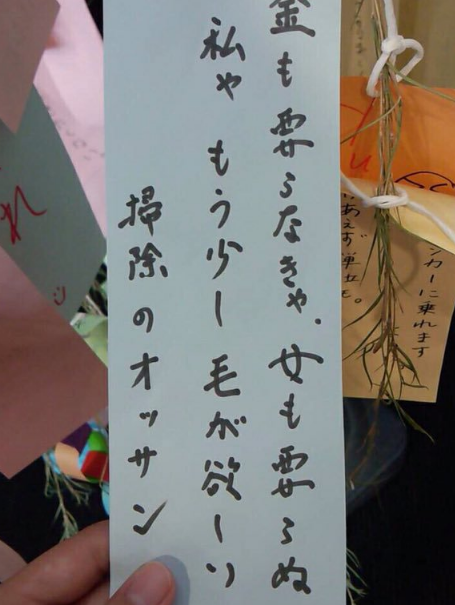 金も要らなきゃ、女も要らぬ
私ゃ もう少し 毛が欲しい
掃除のオッサン
ンカーに乗れます
あえず単立を。
れ